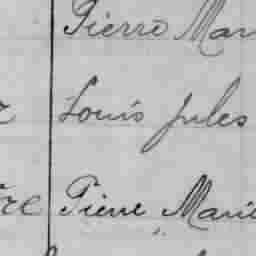 Pierre Mar
Louis Jules
re Pierre Marie